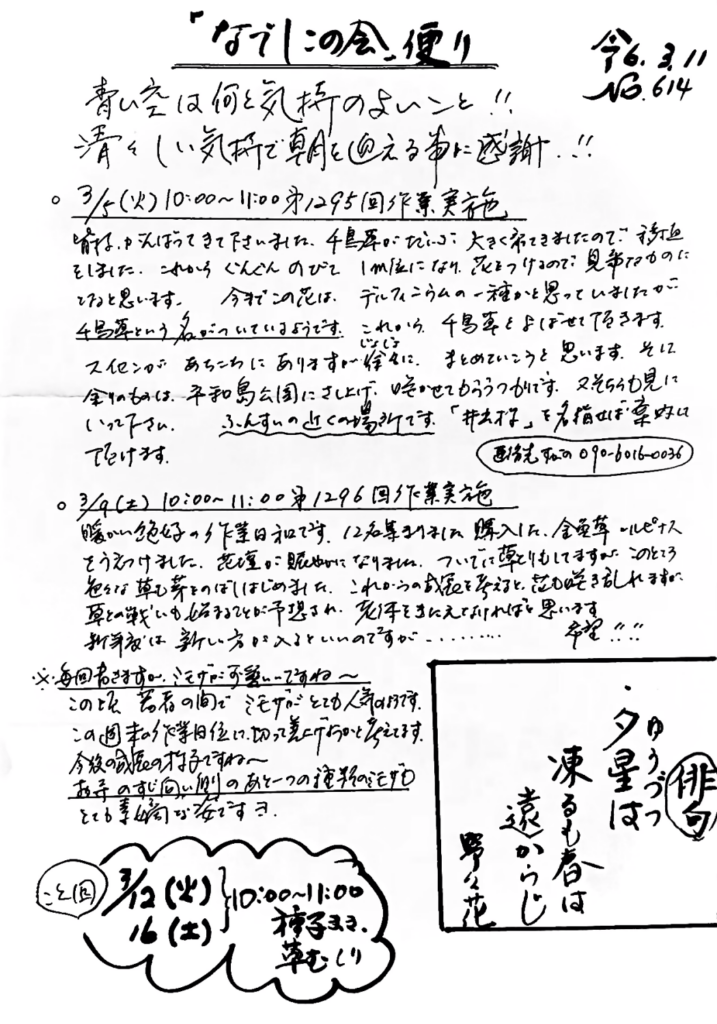 「なでしこの会」便り
令6.3.11
No.614
青い空は何と気持のよいこと!!
清々しい気持で朝を迎える事に感謝.!!
○ 3/5(火)10:00~11:00第1295回作業実施
皆様、がんばってきて下さいました。千鳥草がだいぶ大きく育ってきましたので移植
をしました。これからぐんぐんのびて1m位になり、花をつけるので見事なものに
なると思います。今までこの花は、デルフィニウムの一種かと思っていましたが
千鳥草という名がついているようです。これから、千鳥草とよばせて頂きます。
スイセンがあちこちにありますが徐々に、まとめていこうと思います。そして
じょじょ
余りのものは、平和島公園にさし上げ、咲かせてもらうつもりです。又そちらも見に
いって下さい。ふんすいの近くの場所です。「井出様」を名指せば案内して
頂けます。
090-6016-0036
○ 3/9(土)10:00~11:00第1296回作業実施
暖かい絶好の作業日和です。12名集まりました。購入した、金魚草・ルピナス
をうえつけました。花壇が賑やかになりました。ついでに草とりもしてますが、このところ
色々な草も芽をのばしはじめました。これからの成長を考えると、花も咲き乱れますが
草との戦いも始まることが予想され、老体をきたえなければと思います
新年度は新しい方が入るといいのですが………
希望!!
※毎回書きますが、ミモザが可愛いですね~
この頃、若者の間でミモザがとても人気のようです。
この週末の作業日位に、切って差上げようかと考えてます。
今後の成長の様子ですね~
のすじ向い側のあと一つの種類のミモザも
とても素晴な姿です
俳句
・夕星は
ゆうづつ
凍るも春は
遠からじ
野々花
こん回
3/12(火)
16(土)
10:00~11:00
種子まき、
草むしり